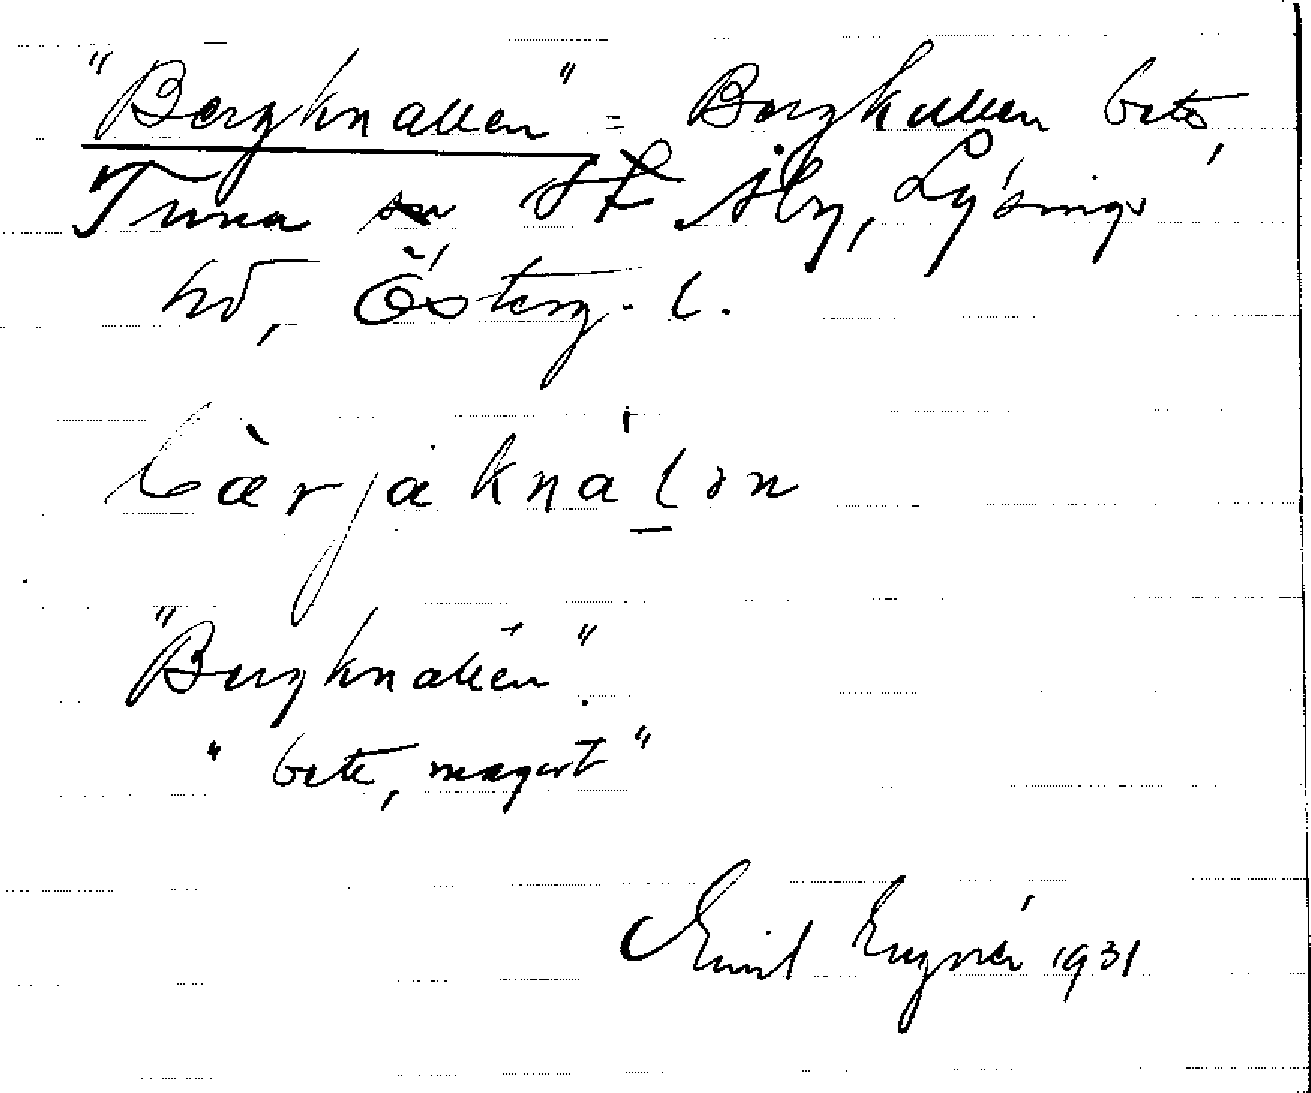 "Bergknallen" = Bergkullen bete,
Tuna sn St Åby, Lysings
hd, Österg. l.
bàrjaknaʹlən
"Bergknallen".
"bete, magert"
Emil 1931